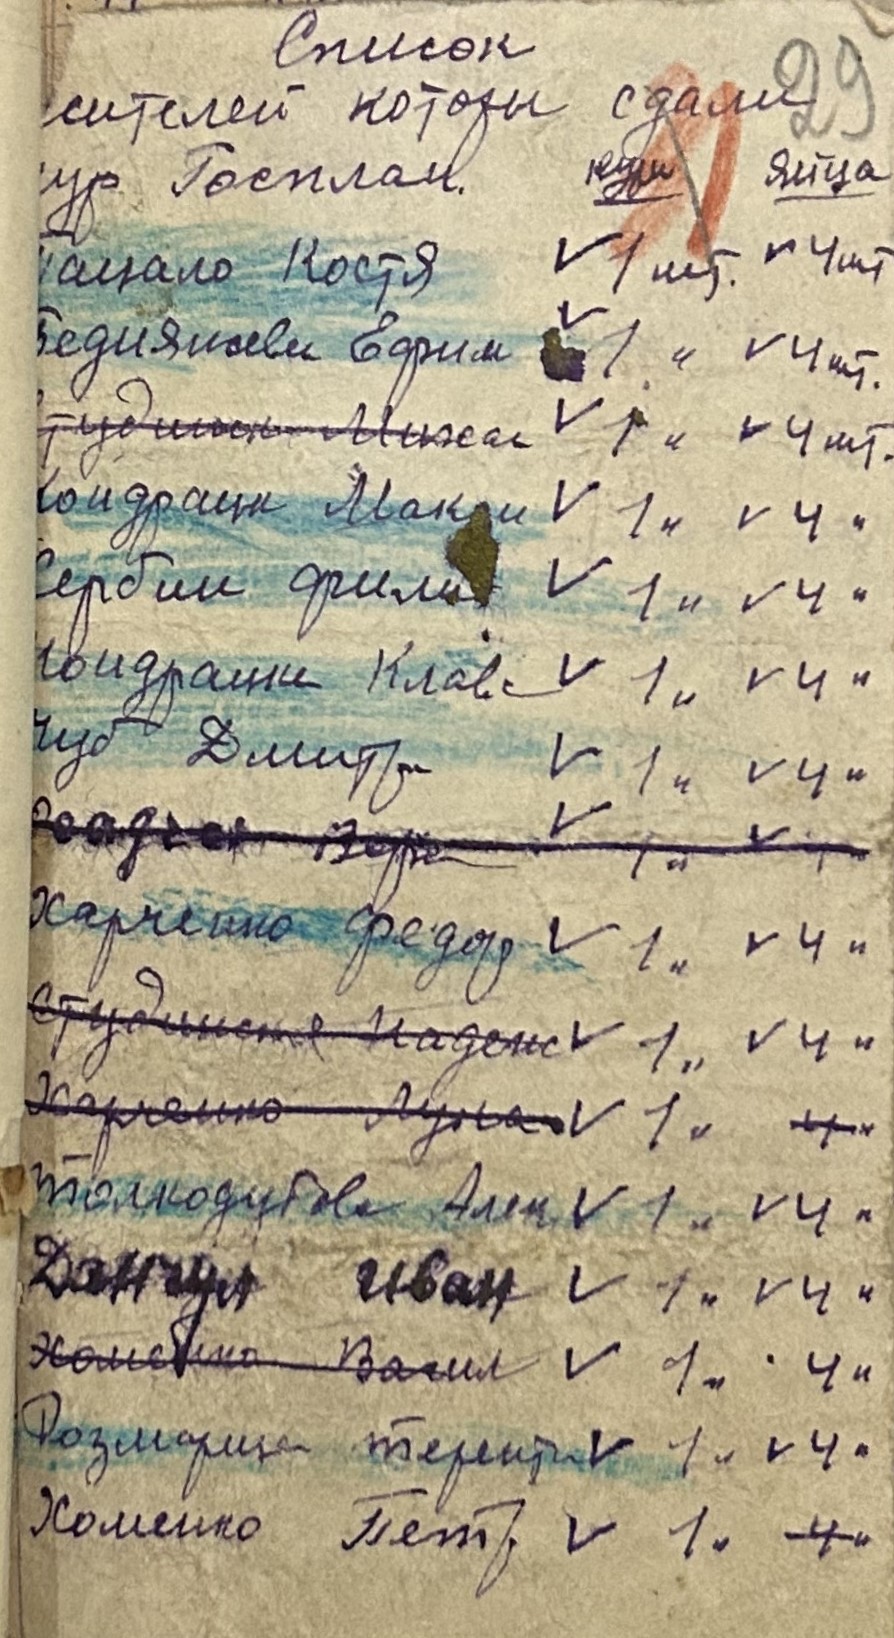 Список 29
сителей которы сдали
кур Госплан. куры яйца
Пацало Костя ✓ 1 шт. ✓ 4 шт
Ефим ✓ 1 " ✓ 4 шт.
Студинск Михаи ✓ 1 " ✓ 4 шт.
Кондрацк Макси ✓ 1 " ✓ 4 "
Сербин Филип ✓ 1 " ✓ 4 "
Кондрацки Клавд ✓ 1 " ✓ 4 "
Чуб Дмитр ✓ 1 " ✓ 4 "
✓ 1 " ✓ 4 "
Харченко Федор ✓ 1 " ✓ 4 "
Студинская Надежд ✓ 1 " ✓ 4 "
Харченко Лука ✓ 1 " 4 "
Толкодубова Алек ✓ 1 " ✓ 4 "
Данчул Иван ✓ 1 " ✓ 4 "
Хоменко Васил ✓ 1 " 4 "
Розмарица Терент ✓ 1 " ✓ 4 "
Хоменко Петр ✓ 1 " 4 "